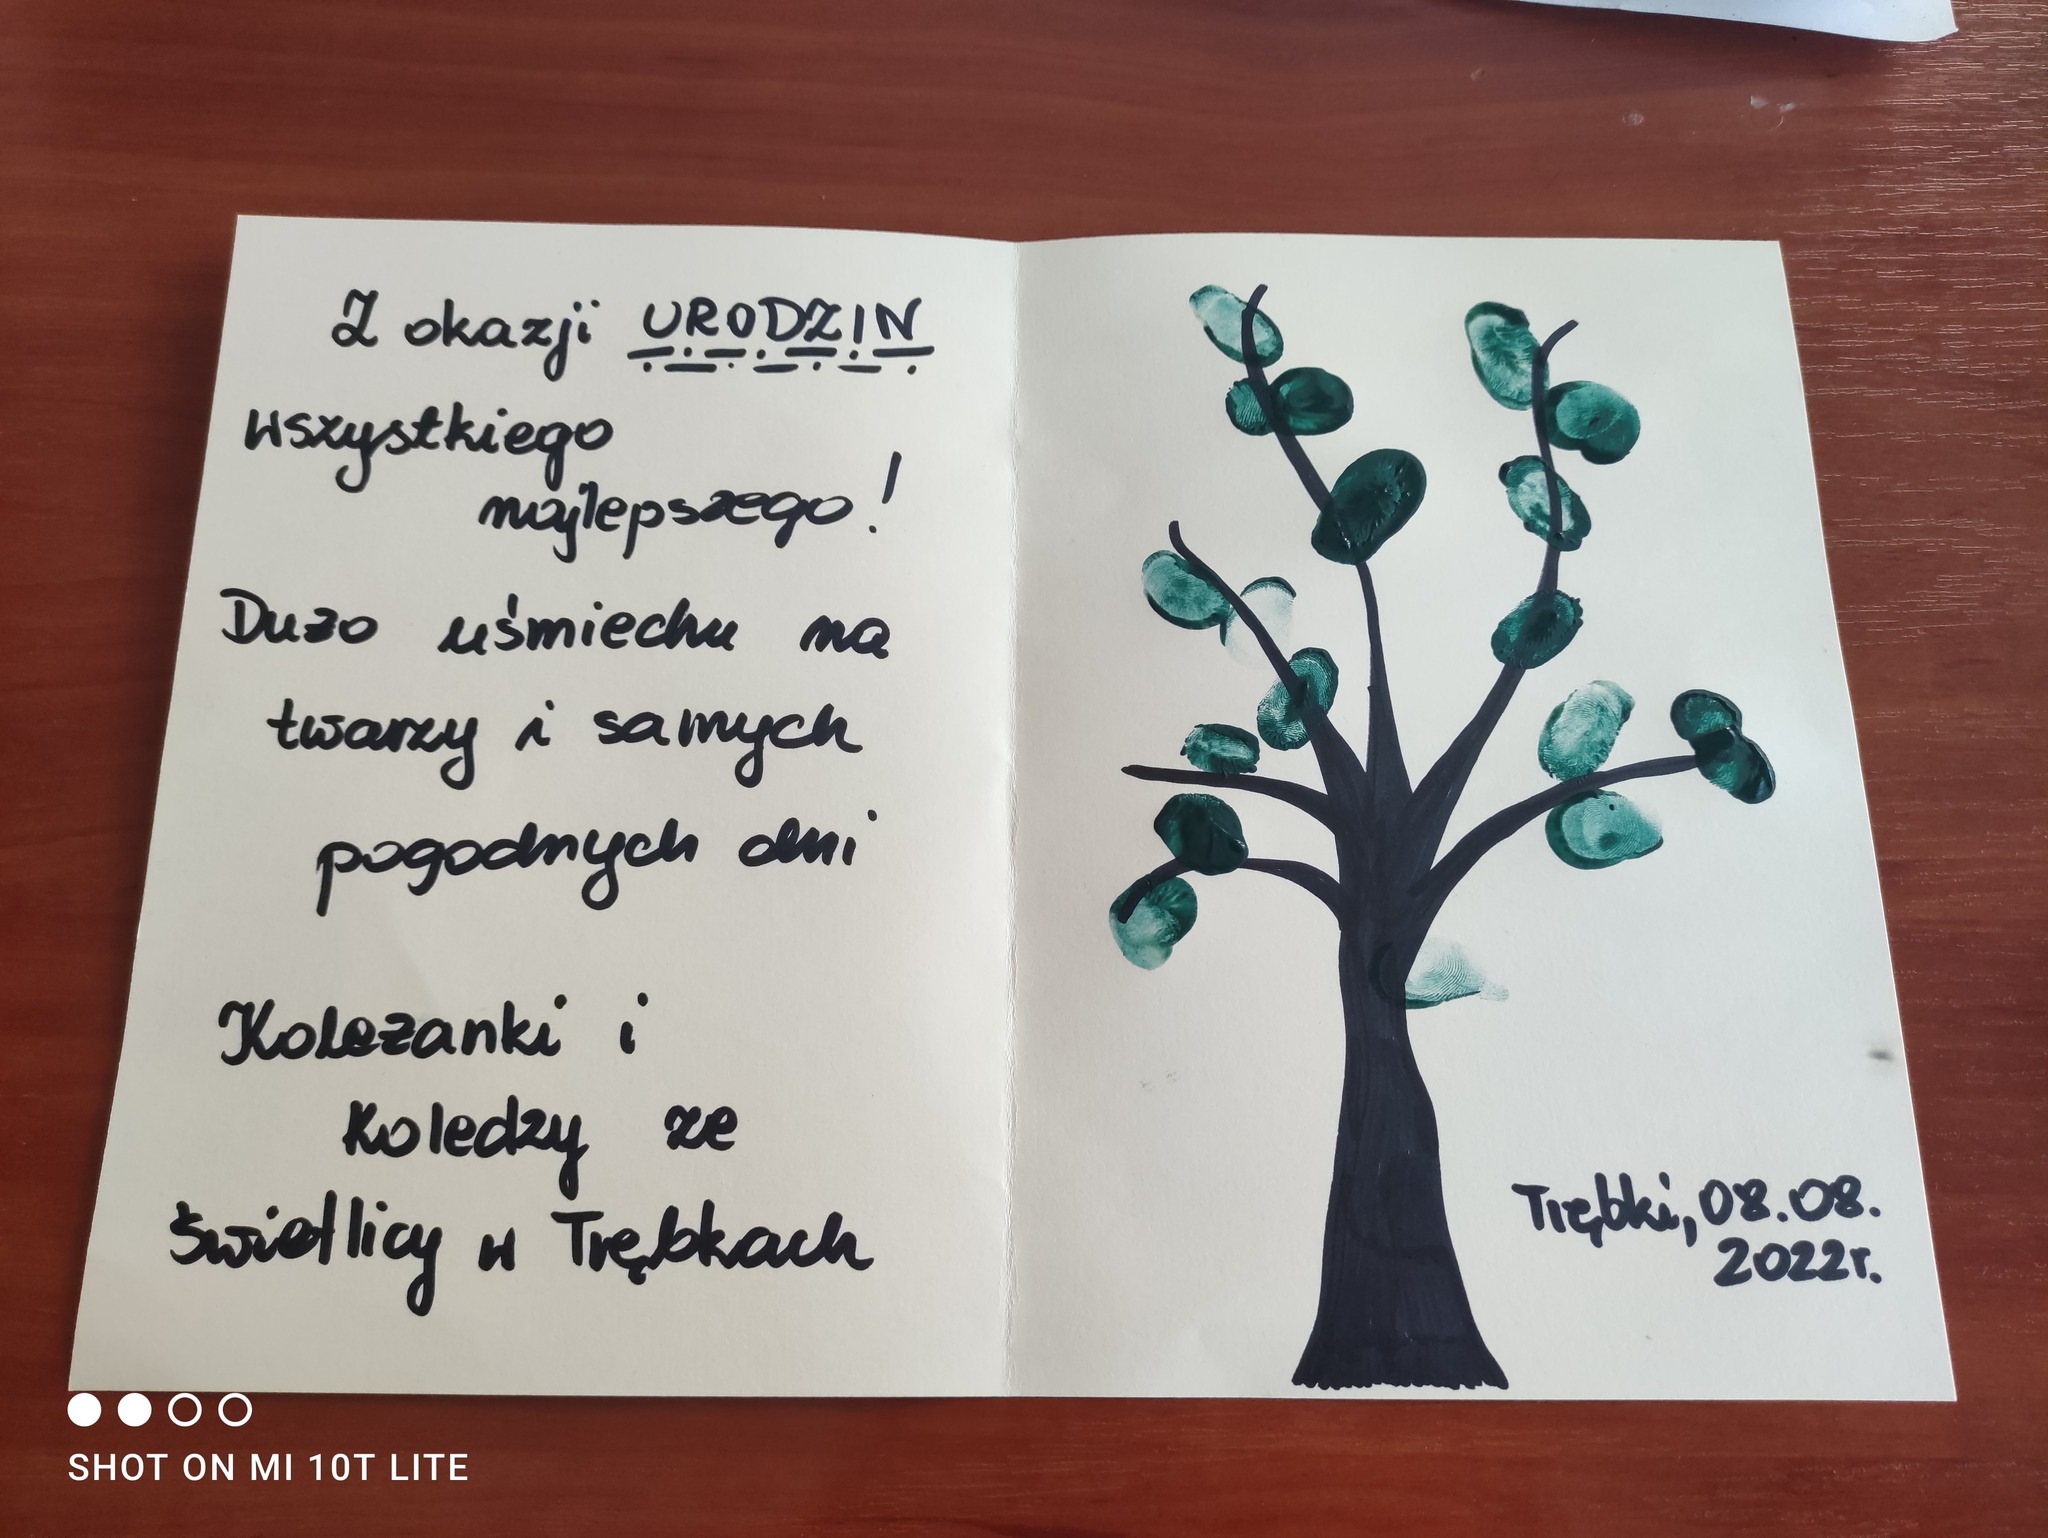 Z okazji URODZIN
wszystkiego
najlepszego!
Dużo uśmiechu na
twarzy i samych
pogodnych dni
Koleżanki i
Koledzy ze
Świetlicy w Trębkach
Trębki, 08.08.
2022r.
SHOT ON MI 10T LITE